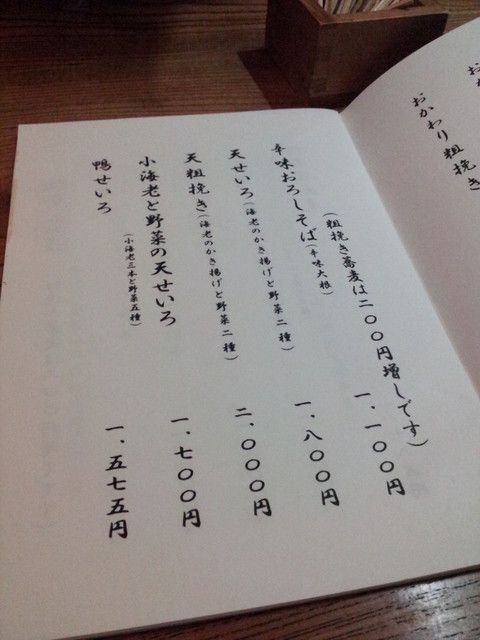 おかわり粗挽き
(粗挽き蕎麦は二〇〇円増しです)
辛味おろしそば(辛味大根) 一、一〇〇円
天せいろ(海老のかき揚げと野菜二種) 一、八〇〇円
天粗挽き(海老のかき揚げと野菜二種) 二、〇〇〇円
小海老と野菜の天せいろ(小海老三本と野菜五種) 一、七〇〇円
鴨せいろ 一、五七五円